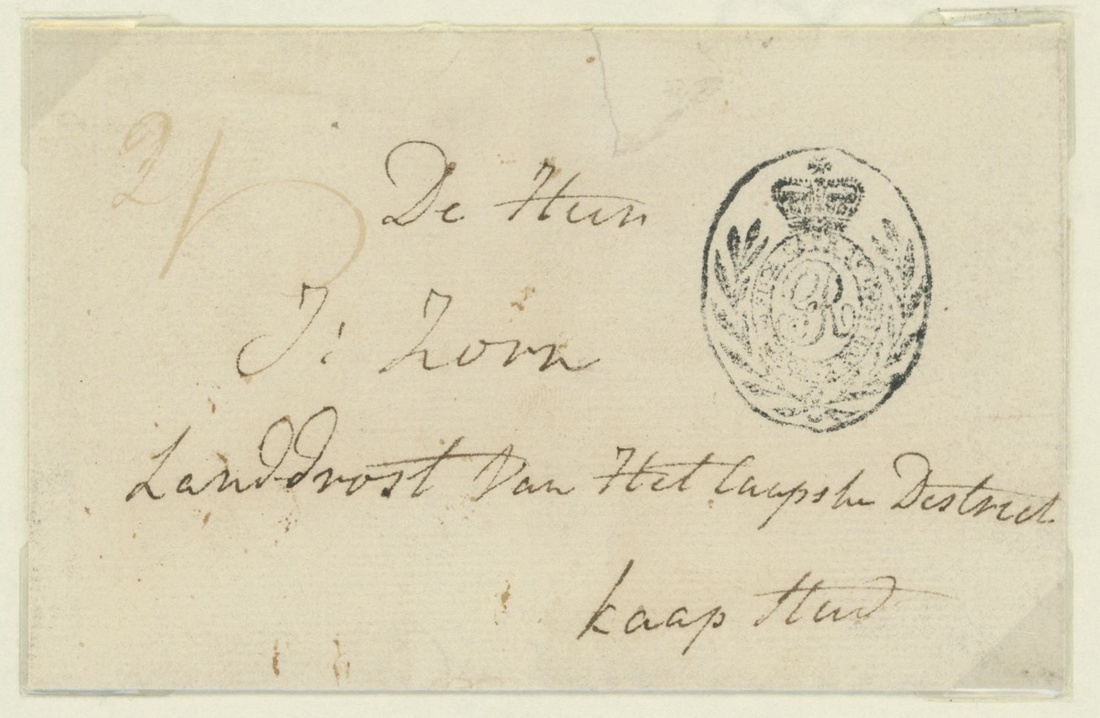 2/
De Heer
J: Zorn
Landdrost Van Het Caapshe Destrict
kaap Sted
R